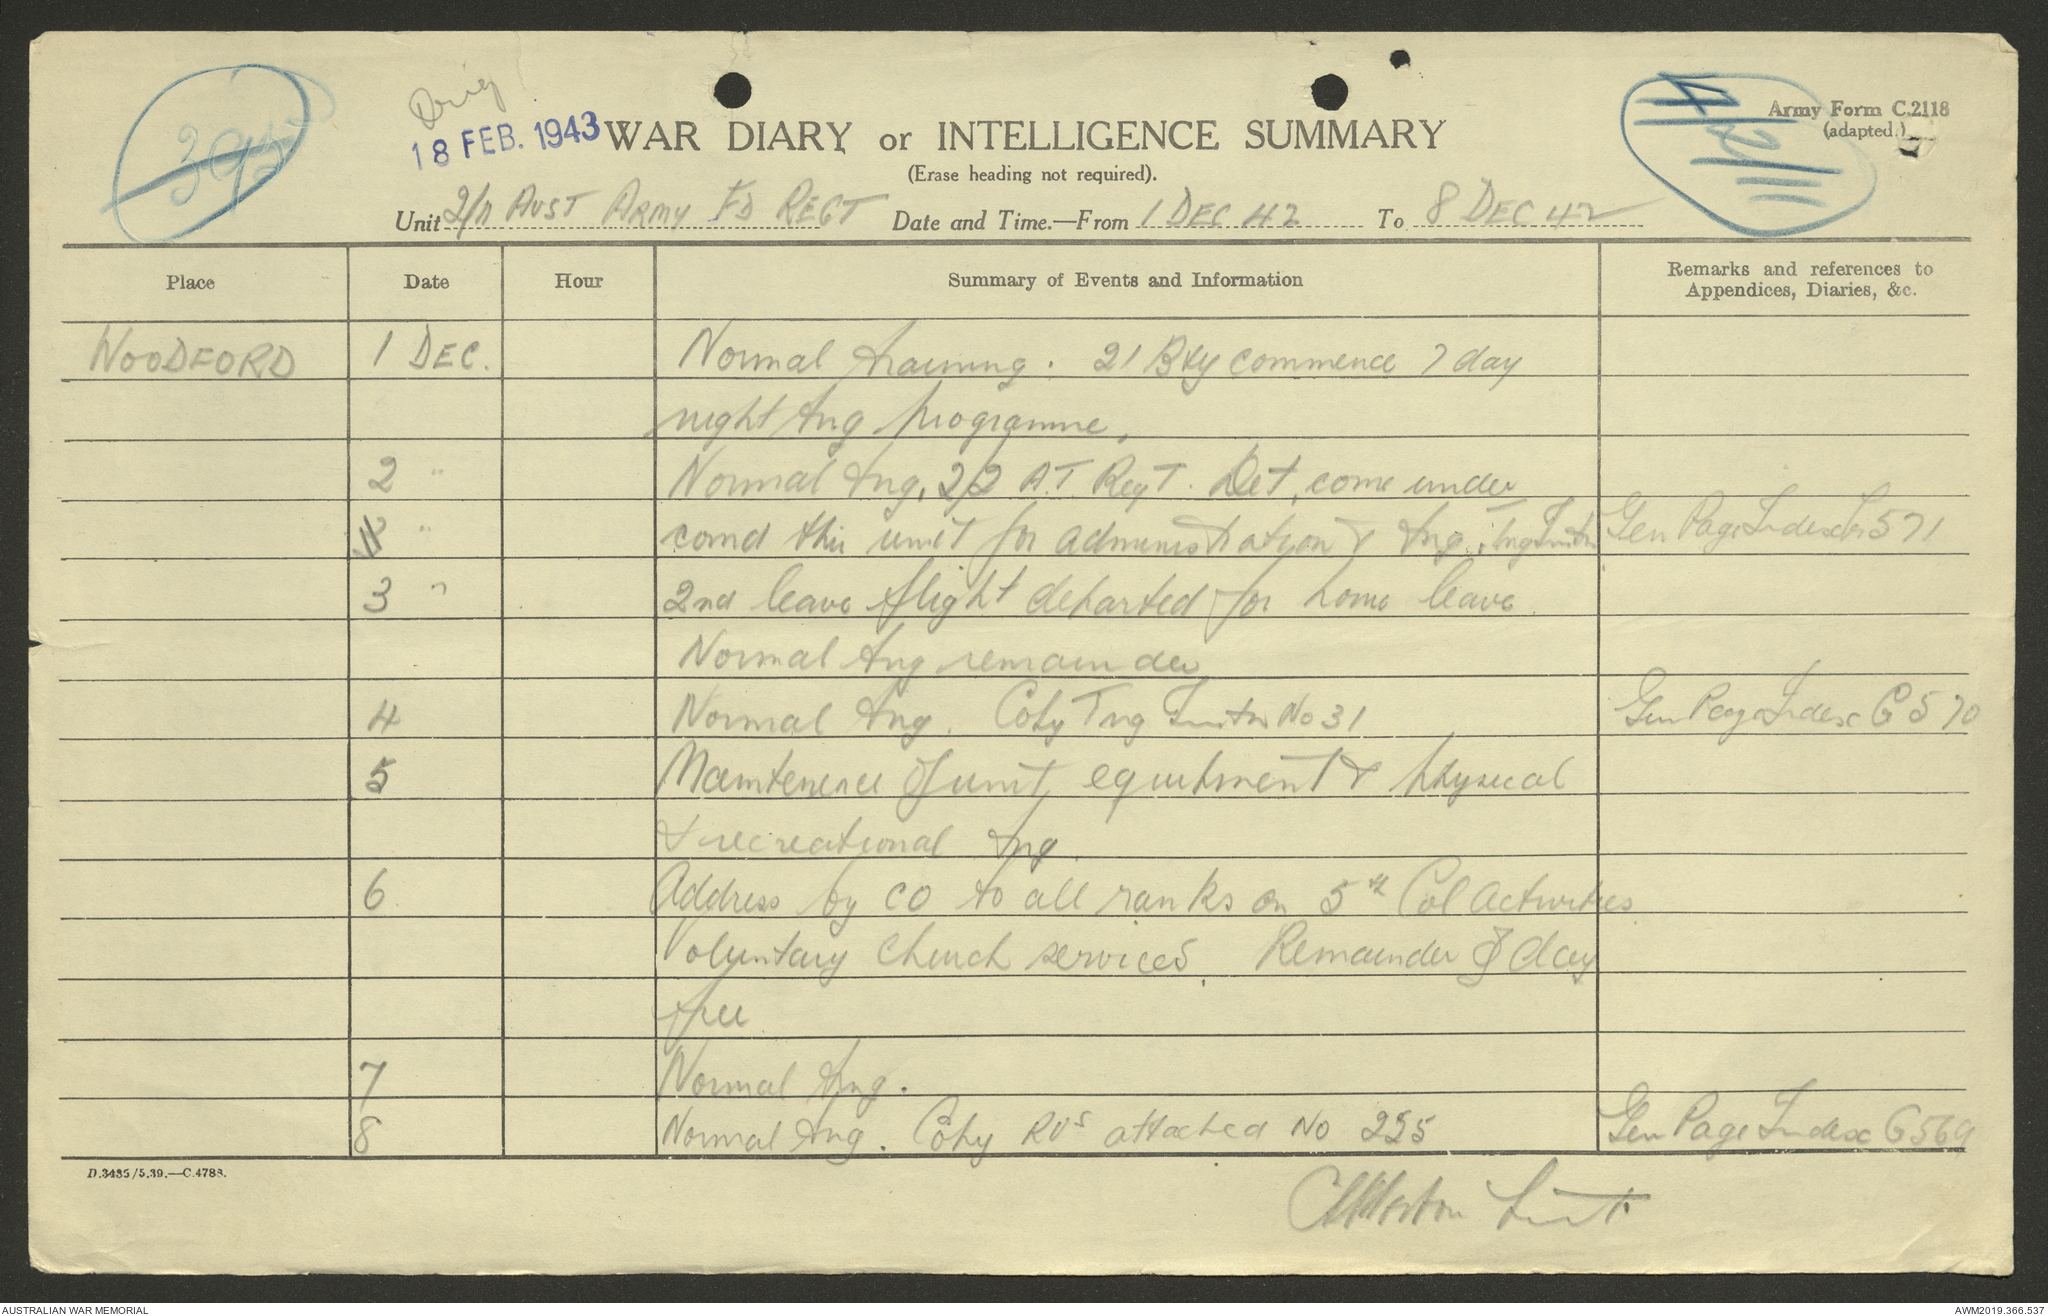 Orig
395
18 FEB. 1943
WAR DIARY or INTELLIGENCE SUMMARY
(Erase heading not required).
Army Form C.2118
(adapted.)
Unit 2/11 AUST ARMY FD REGT Date and Time.—From 1 DEC 42 To 8 DEC 42
Place Date Hour Summary of Events and Information Remarks and references to Appendices, Diaries, &c.
WOODFORD 1 DEC. Normal training. 21 Bty commence 7 day
night tng programme.
2 " Normal tng, 2/2 A.T. Regt. Det, come under
" comd this unit for administration & tng. Gen Page Index 571
3 " 2nd leave flight departed for home leave.
Normal tng remainder
4 Normal tng. Copy Tng Instn No 31 Gen Page Index G 570
5 Maintenence of unit equipment & physical
& recreational tng.
6 Address by CO to all ranks on 5th Col Activities
Voluntary church services. Remainder of day
free
7 Normal tng.
8 Normal tng. Copy ROs attached No 225 Gen Page Index G569
D.3435/5.39.—C.4788.
Lieut
AUSTRALIAN WAR MEMORIAL
AWM2019.366.537